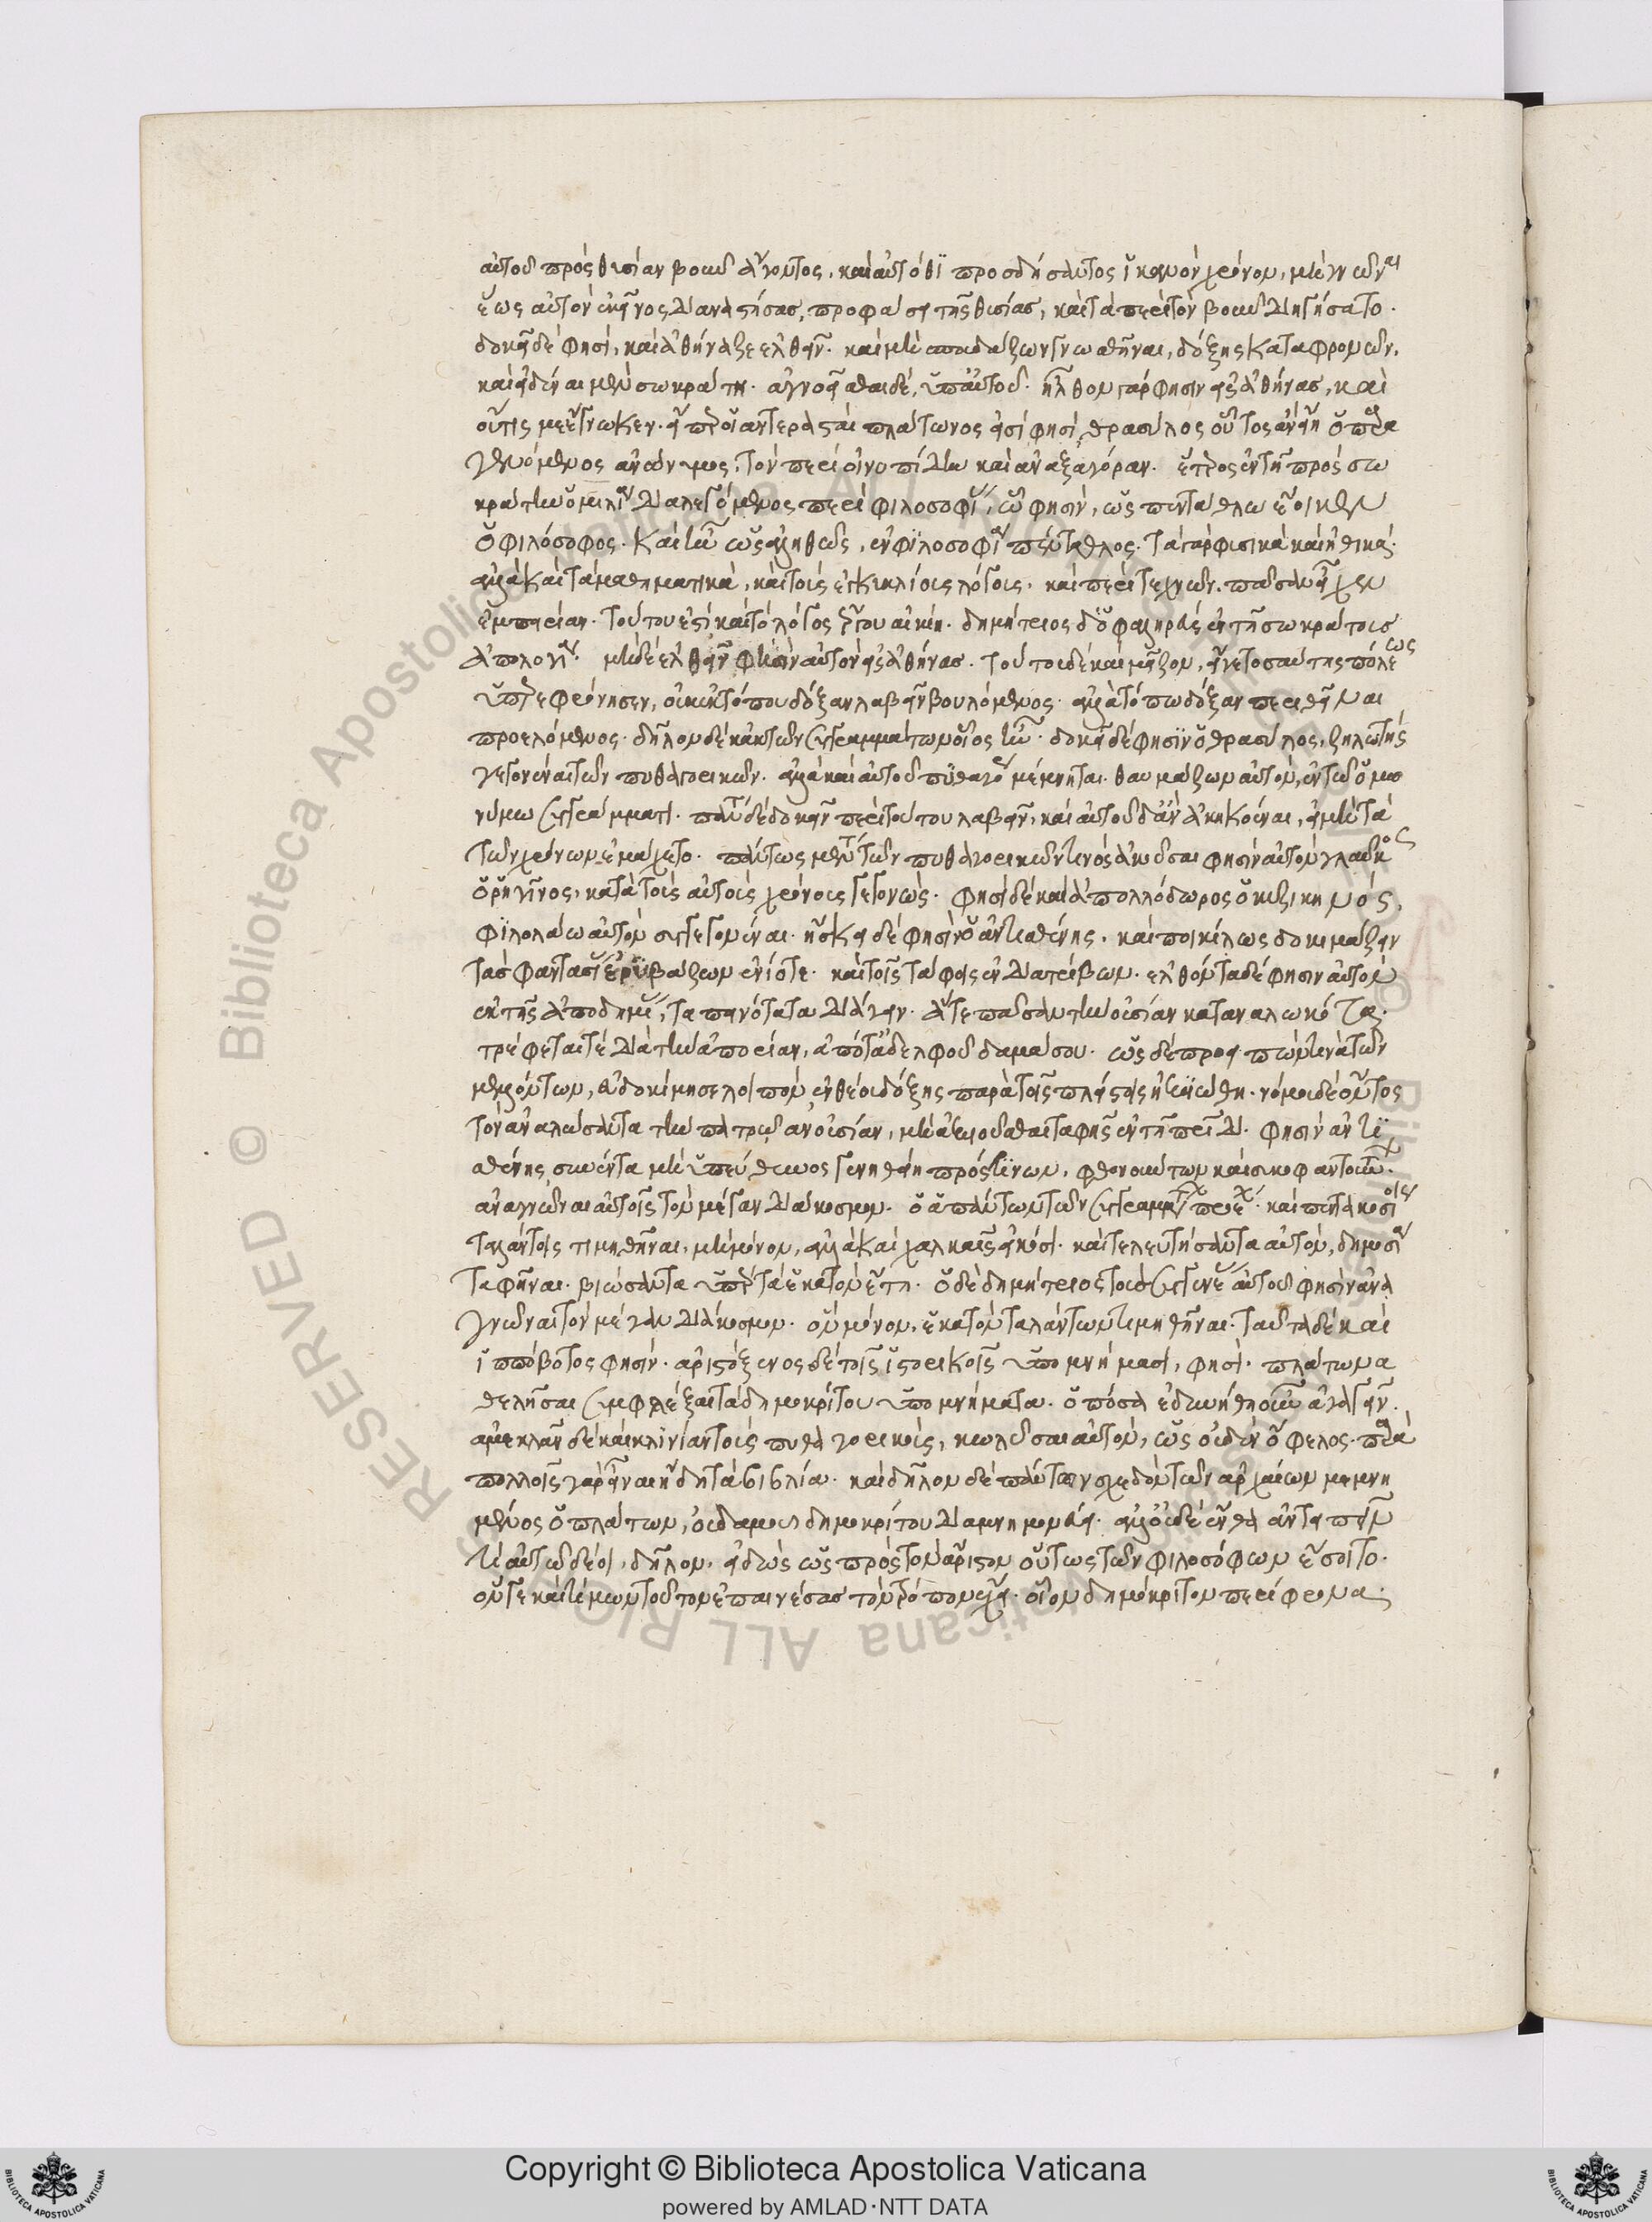 αὐτοῦ πρὸς θυσίαν βοῦν ἄγοντος, καὶ αὐτόθι προσδήσαντος ἱκανὸν χρόνον, μὴ γνῶναι
ἕως αὐτὸν ἐκεῖνος διαναστήσας, προφάσει τῆς θυσίας, καὶ τὰ περὶ τὸν βοῦν διηγήσατο.
δοκεῖ δέ φησι, καὶ ἀθήναζε ἐλθεῖν. καὶ μὴ σπουδάζων γνωσθῆναι, δόξης καταφρονῶν.
καὶ εἰδέναι μὲν σωκράτη. ἀγνοεῖσθαι δὲ, ὑπ' αὐτοῦ. ἦλθον γάρ φησιν εἰς ἀθήνας, καὶ
οὔτις με ἔγνωκεν. εἴπερ οἱ ἀντερασταὶ πλάτωνος εἰσί φησὶ θρασύλος οὗτος ἂν εἴη ὁ παρα
γενόμενος ἀνώνυμος, τὸν περὶ οἰνοπίδην καὶ ἀναξαγόραν. ἕτερος ἐν τῇ πρὸς σω
κράτην ὁμιλίᾳ διαλεγόμενος περὶ φιλοσοφίας, ᾧ φησὶν, ὡς πεντάθλω ἔοικεν
ὁ φιλόσοφος. καὶ ἦν ὡς ἀληθῶς, ἐν φιλοσοφίᾳ πένταθλος. τὰ γὰρ φυσικὰ καὶ ἠθικά.
ἀλλὰ καὶ τὰ μαθηματικὰ, καὶ τοὺς ἐγκυκλίους λόγους. καὶ περὶ τεχνῶν. πᾶσαν εἶχεν
ἐμπειρίαν. τούτου ἐστὶ καὶ τὸ λόγος ἔργου σκιή. δημήτριος δ' ὁ φαληρεὺς ἐν τῇ σωκράτους
ἀπολογίᾳ. μὴ δὲ ἐλθεῖν φησὶν αὐτὸν εἰς ἀθήνας. τοῦτο δὲ καὶ μεῖζον, εἴγε τοσαύτης πόλεως
ὑπερεφρόνησεν, οὐκ ἐκ τόπου δόξαν λαβεῖν βουλόμενος. ἀλλὰ τόπω δόξαν περιθεῖναι
προελόμενος. δῆλον δὲ κἀκ τῶν συγγραμμάτων οἷος ἦν. δοκεῖ δέ φησιν ὁ θρασύλος, ζηλωτὴς
γεγονέναι τῶν πυθαγορικῶν. ἀλλὰ καὶ αὐτοῦ πυθαγόρου μέμνηται. θαυμάζων αὐτὸν, ἐν τῶ ὁμω
νύμω συγγράμματι. πάντα δὲ δοκεῖν περὶ τούτου λαβεῖν, καὶ αὐτοῦ δ' ἂν ἀκηκοέναι, εἰ μὴ τὰ
τῶν χρόνων ἐμάχετο. πάντως μέντοι τῶν πυθαγορικῶν τινὸς ἀκοῦσαι φησὶν αὐτὸν γλαῦκος
ὁ ῥηγῖνος, κατὰ τοὺς αὐτοὺς χρόνους γεγονώς. φησὶ δὲ καὶ ἀπολλόδωρος ὁ κυζικηνός,
φιλολάω αὐτὸν συγγεγονέναι. ἤσκει δέ φησὶν ὁ ἀντισθένης. καὶ ποικίλως δοκιμάζειν
τὰς φαντασίας ἐρυμάζων ἐνίοτε. καὶ τοῖς τάφοις ἐνδιατρίβων. ἐλθόντα δέ φησιν αὐτὸν
ἐκ τῆς ἀποδημίας, ταπεινότατα διάγειν. ἅτε πᾶσαν τὴν οὐσίαν καταναλωκότα.
τρέφεταί τε διὰ τὴν ἀπορίαν, ἀπὸ τἀδελφοῦ δαμάσου. ὡς δὲ προειπών τινα τῶν
μελλόντων, εὐδοκίμησε λοιπὸν ἐνθέου δόξης παρὰ τοῖς πλείστοις ἠξιώθη. νόμου δὲ ὄντος
τὸν ἀναλώσαντα τὴν πατρώαν οὐσίαν, μὴ ἀξιοῦσθαι ταφῆς ἐν τῇ πατρίδι. φησὶν ἀντι
σθένης συνέντα μὴ ὑπεύθυνος γενηθείη πρός τινων, φθονούντων καὶ συκοφαντούντων.
ἀναγνῶναι αὐτοῖς τὸν μέγαν διάκοσμον. ὃ ἁπάντων τῶν συγγραμμάτων προέχει. καὶ πεντακοσίοις
ταλάντοις τιμηθῆναι, μὴ μόνον, ἀλλὰ καὶ χαλκαῖς εἰκόσι. καὶ τελευτήσαντα αὐτὸν, δημοσίᾳ
ταφῆναι. βιώσαντα ὑπὲρ τὰ ἑκατὸν ἔτη. ὁ δὲ δημήτριος τοὺς συγγενέας αὐτοῦ φησὶν ἀνα
γνῶναι τὸν μέγαν διάκοσμον. ὃν μόνον, ἑκατὸν ταλάντων τιμηθῆναι. ταῦτα δὲ καὶ
ἱππόβοτος φησίν. ἀριστόξενος δὲ τοῖς ἱστορικοῖς ὑπομνήμασι, φησὶ. πλάτωνα
θελῆσαι συμφλέξαι τὰ δημοκρίτου ὑπομνήματα. ὁπόσα ἐδυνήθη συναγαγεῖν.
ἀμύκλαν δὲ καὶ κλινίαν τοὺς πυθαγορικοὺς, κωλῦσαι αὐτὸν, ὡς οὐδὲν ὄφελος. παρὰ
πολλοῖς γὰρ εἶναι ἤδη τὰ βιβλία. καὶ δῆλον δὲ πάντων σχεδὸν τῶν ἀρχαίων μεμνη
μένος ὁ πλάτων, οὐδαμοῦ δημοκρίτου διαμνημονεύει. ἀλλ' οὐδὲ ἔνθα ἀντειπεῖν
τι αὐτῶ δέοι, δῆλον, εἰδὼς ὡς πρὸς τὸν ἄριστον οὕτως τῶν φιλοσόφων ἔσοιτο.
ὅν γε καὶ τίμων τοῦτον ἐπαινέσας τὸν τρόπον ἔχει. οἷον δημόκριτον περίφρονα